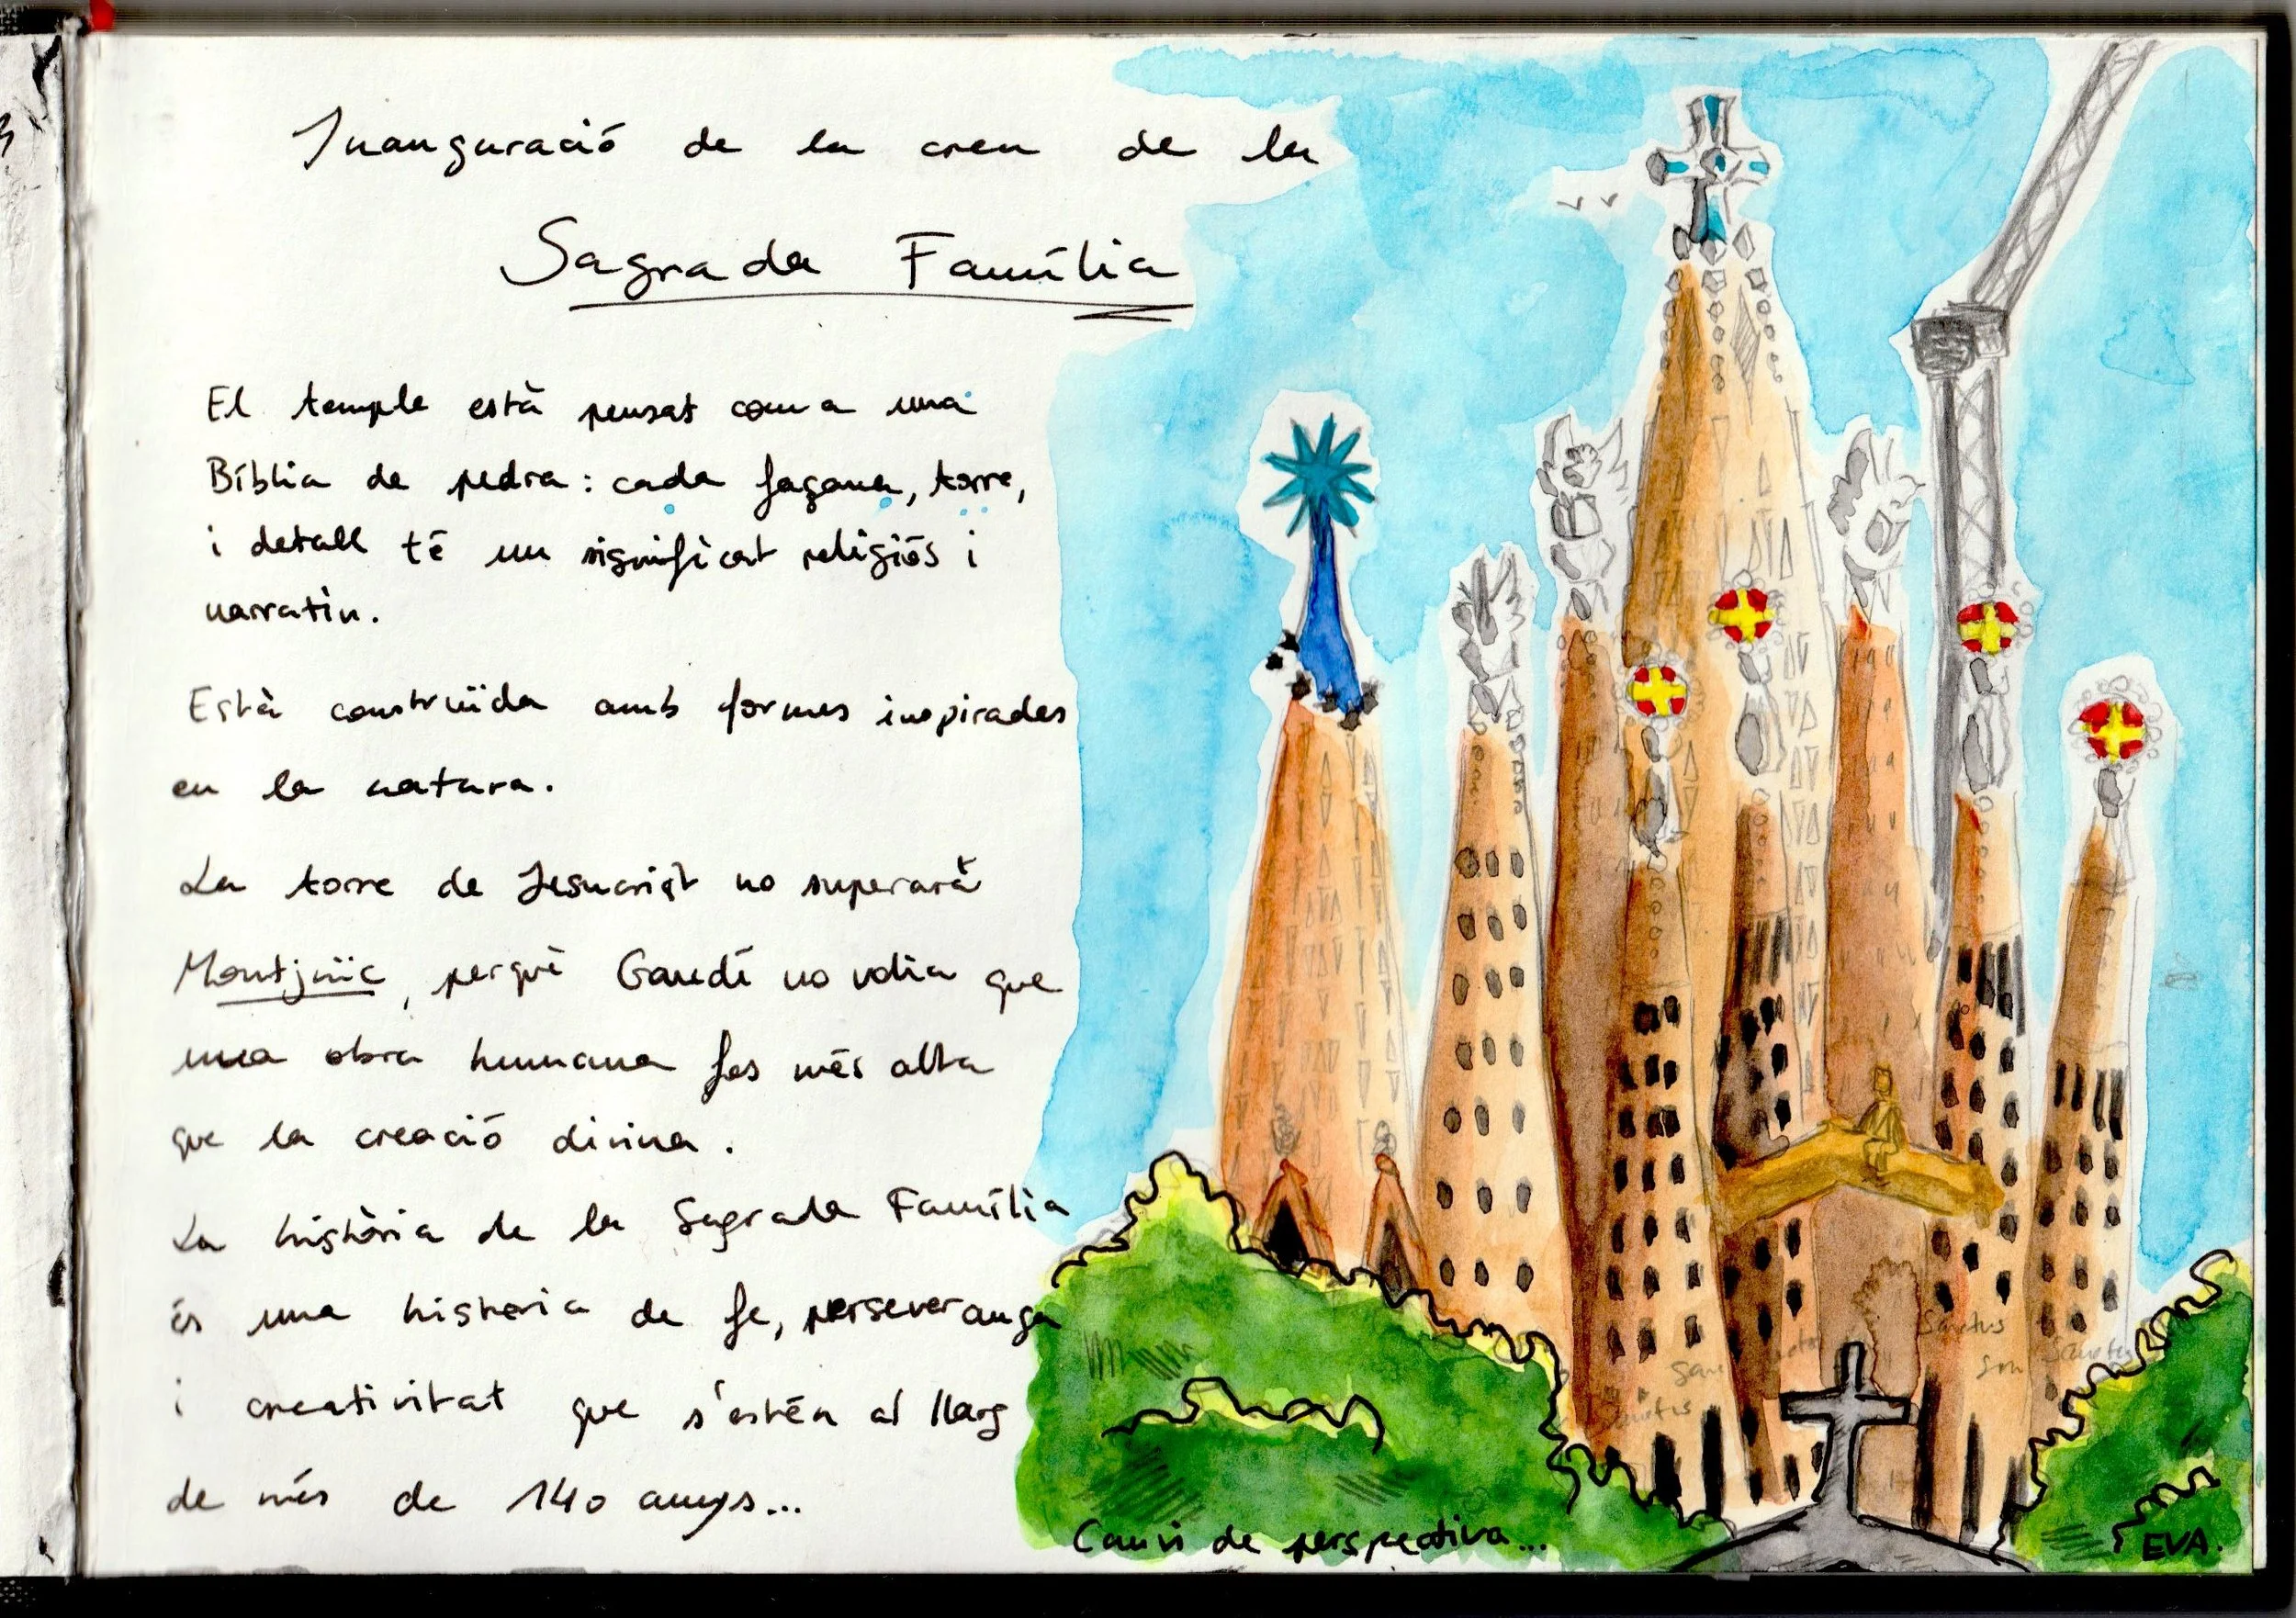 Inauguració de la creu de la
Sagrada Família
El temple està pensat com a una
Bíblia de pedra: cada façana, torre,
i detall té un significat religiós i
narratiu.
Està construïda amb formes inspirades
en la natura.
La torre de Jesucrist no superarà
Montjuïc, perquè Gaudí no volia que
una obra humana fos més alta
que la creació divina.
La història de la Sagrada Família
és una historia de fe, perseverança
i creativitat que s'estén al llarg
de més de 140 anys...
Sanctus
Sanctus
Sanctus
Canvi de perspectiva...
EVA.